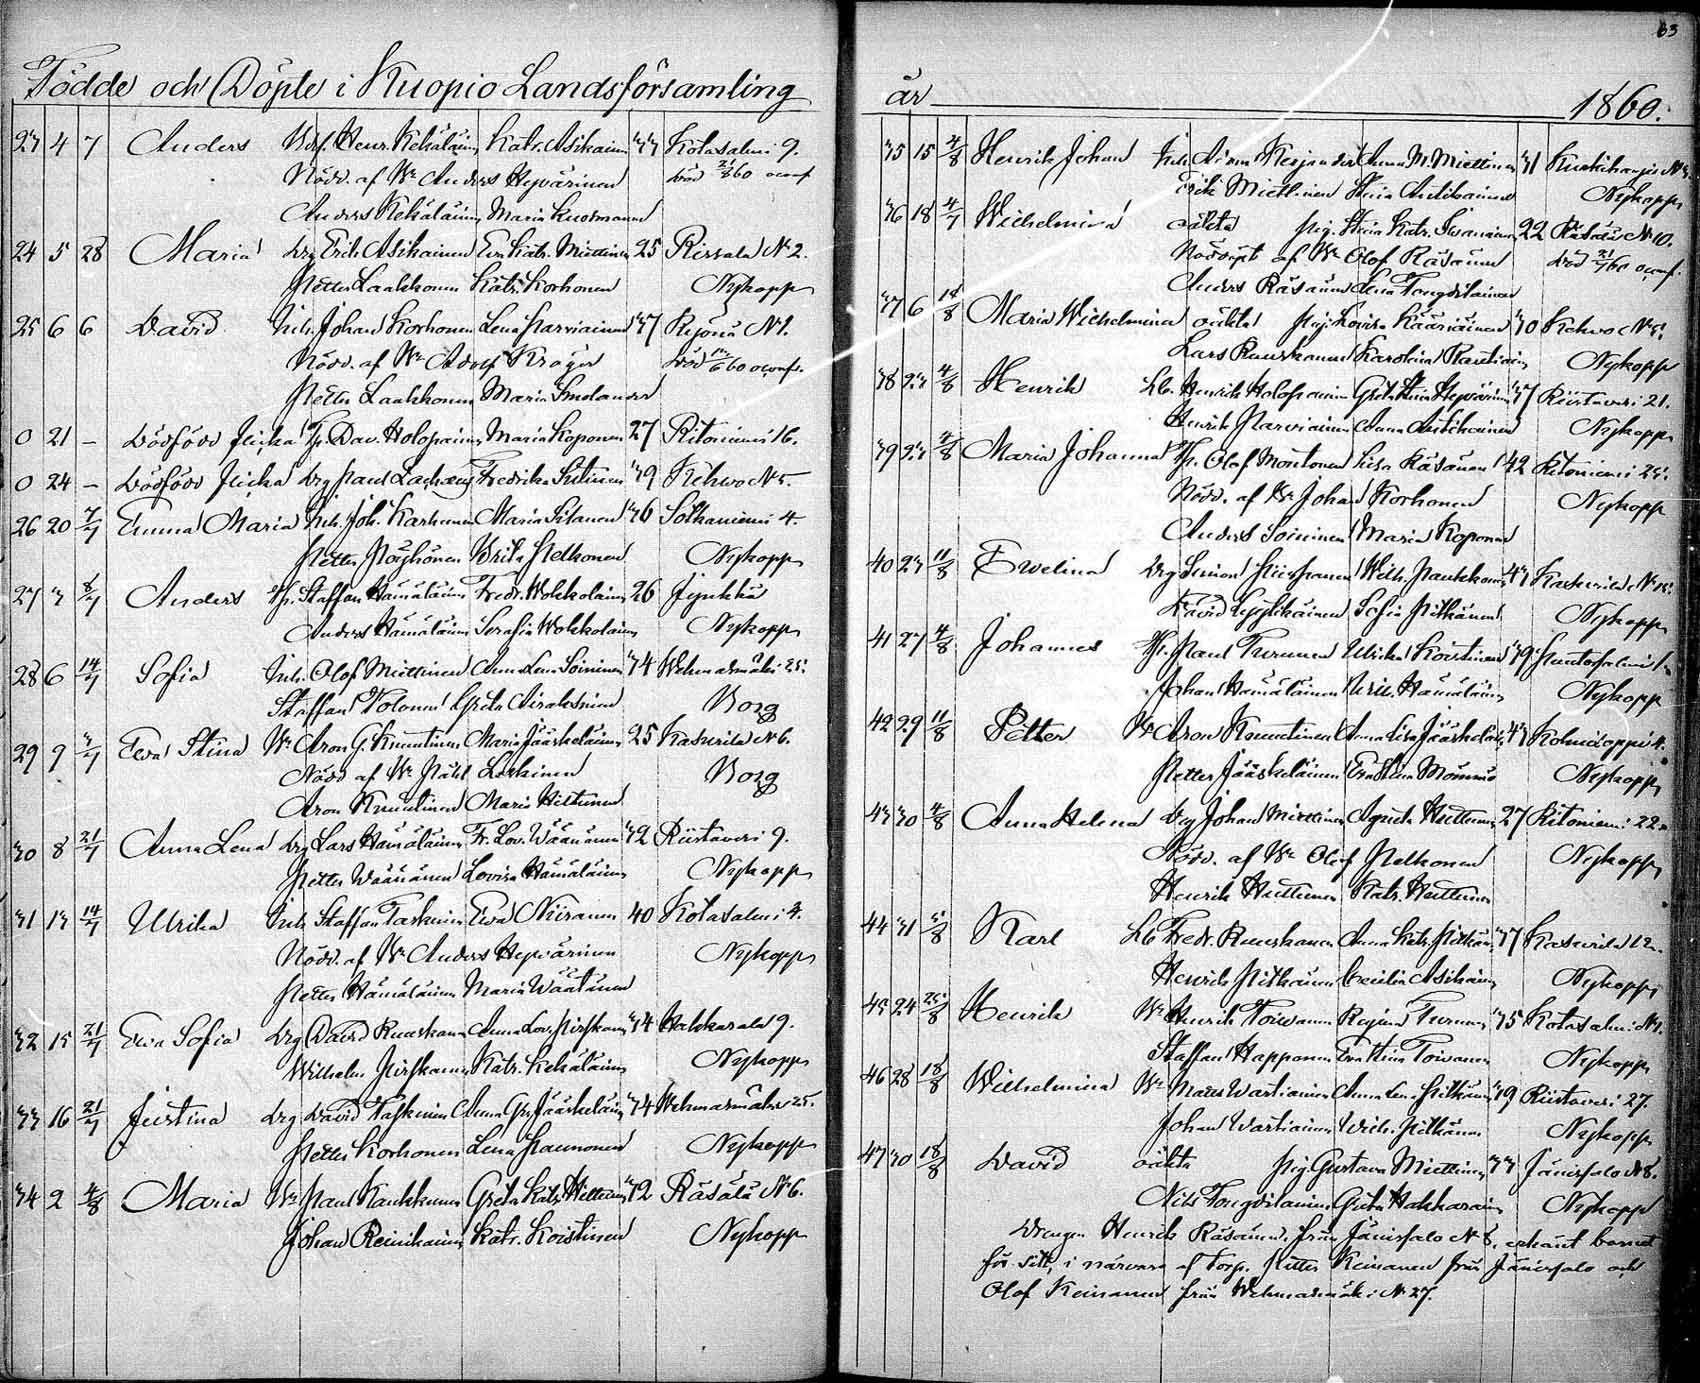 Födde och Döpte i Kuopio Landsförsamling
23 4 7 Anders Henr. Kekäläinen Katr. Asikainen 33 Kotasalmi 9.
Nödd. af Anders Hyvärinen Död 21/7 60 oconf.
Anders Kekäläinen Maria
24 5 28 Maria Drg Erik Asikainen Eva Katr. Miettinen 25 Rissala N 2.
Petter Laakkonen Katr. Korhonen Nykopp
25 6 6 David Inh. Johan Korhonen Lena Parviainen 37 N 1.
Nödd. af Adolf Kröger Död 60 oconf.
Petter Laakkonen Maria Smolander
0 21 – Dödfödd flicka Tp. Dav. Holopainen Maria Koponen 27 Ritoniemi 16.
0 24 – Dödfödd flicka Drg Paul Fredrika 39 Kehvo N 5.
26 20 7/7 Emma Maria Inh. Joh. Karhunen Maria 36 4.
Petter Pöyhönen Ulrika Pelkonen Nykopp
27 3 8/7 Anders Staffan Hämäläinen Fredr. Wolkolainen 26 Jynkkä
Anders Hämäläinen Serafia Wolkolainen Nykopp
28 6 14/7 Sofia Inh. Olof Miettinen Anna Lena Soininen 34 Wehmasmäki 25.
Staffan Greta Airaksinen Borg
29 9 Eva Stina Aron G. Knuutinen Maria Jääskeläinen 25 Kasurila N 6.
Nödd af Påhl Borg
Aron Knuutinen Maria Hiltunen
30 8 21/7 Anna Lena Drg Lars Hämäläinen Fr. Lov. Väänänen 32 Riistavesi 9.
Petter Wäänänen Lovisa Hämäläinen Nykopp
31 13 14/7 Ulrika Inh. Staffan Taskinen Eva Niiranen 40 Kotasalmi 3.
Nödd. af Anders Hyvärinen Nykopp
Petter Hämäläinen Maria Wäätänen
32 15 21/7 Eva Sofia Drg David Ruuskanen Anna Lov. Pirskanen 34 Hakkarala 9.
Wilhelm Pirskanen Katr. Kekäläinen Nykopp
33 16 21/7 Justina Drg David Taskinen Anna Gr. Jääskeläinen 34 Wehmasmäki 25.
Petter Korhonen Lena Paunonen Nykopp
34 2 4/8 Maria Paul Kaukkunen Greta Katr. Hiltunen 32 Räsälä N 6.
Johan Reinikainen Katr. Koistinen Nykopp
63
år 1860.
35 15 4/8 Henrik Johan Inh. Adam Kerjander Anna M. Miettinen 31 Kurkiharju N
Erik Miettinen Stina Antikainen Nykopp
36 18 4/7 Wilhelmina oäkta pig. Stina Katr. 22 Räsälä N 10.
Nöddöpt af Olof Räsänen Död 21/7 60 oconf.
Anders Räsänen Lena Tengvilainen
37 6 18/8 Maria Wilhelmina oäkta Pig. Lovisa Kääriäinen 30 Kehvo N 5.
Lars Ruuskanen Karolina Rautiain Nykopp
38 23 4/8 Henrik Lb. Henrik Holopainen Greta Stina Hyvärinen 37 Riistavesi 21.
Henrik Parviainen Anna Antikainen Nykopp
39 23 4/8 Maria Johanna Tp. Olof Montonen Lisa Räsänen 42 Ritoniemi 25.
Nödd. af Johan Korhonen Nykopp
Anders Soininen Maria Koponen
40 23 11/8 Evelina Drg Simon Wilh. Paukkonen 43 Kasurila N 15.
David Lyytikäinen Sofia Pitkänen Nykopp
41 27 4/8 Johannes Paul Turunen Ulrika Koistinen 39
Johan Hämäläinen Ulr. Hämäläinen Nykopp
42 29 11/8 Petter Aron Knuutinen Anna Lisa Jääskeläin 43 4.
Petter Jääskeläinen Eva Stina Mömmö Nykopp
43 30 4/8 Anna Helena Drg Johan Miettinen Agneta Huttunen 27 Ritoniemi 22.
Nödd. af Olof Pelkonen Nykopp
Henrik Huttunen Katr. Huttunen
44 31 5/8 Karl Lb Fredr. Ruuskanen Anna Katr. Pitkän. 37 Kasurila 12.
Henrik Pitkänen Cecilia Asikain Nykopp
45 24 25/8 Henrik Henrik Toivanen Regina Turunen 35 Kotasalmi N 1.
Staffan Happonen Eva Stina Toivanen Nykopp
46 28 18/8 Wilhelmina Mats Wartiainen Anna Lena Pitkänen 39 Riistavesi 27.
Johan Wartiainen Wilh. Pitkänen Nykopp
47 30 18/8 David oäkta Pig. Gustava Miettinen 33 Jänissalo N 8.
Nils Tengvilainen Greta Hakkarain Nykopp
Drengen Henrik Räsänen, från Jänissalo N 8, erkänt barnet
för sitt, i närvaro af Torp. Petter Keinanen från Jänissalo och
Olof Keinanen från Wehmasmäki N 27.